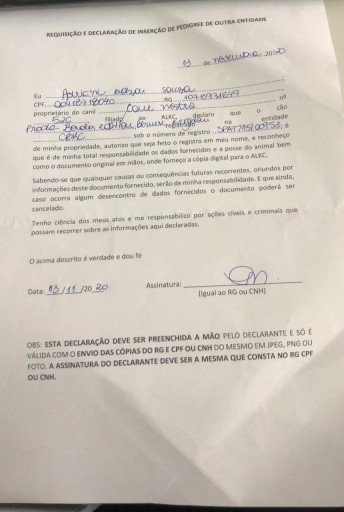 REQUISIÇÃO E DECLARAÇÃO DE INSERÇÃO DE PEDIGREE DE OUTRA ENTIDADE
13 de novembro 2020
Eu Souza
CPF RG
proprietário do canil Cane nº
520 filiado ao ALKC, declaro que o cão
registrado na entidade
sob o número de registro é
de minha propriedade, autorizo que seja feito o registro em meu nome, e reconheço
que é de minha total responsabilidade os dados fornecidos e a posse do animal bem
como o documento original em mãos, onde forneço a cópia digital para o ALKC.
Sabendo-se que quaisquer causas ou consequências futuras recorrentes, oriundos por
informações deste documento fornecido, serão de minha responsabilidade. E que ainda,
caso ocorra algum desencontro de dados fornecidos o documento poderá ser
cancelado.
Tenho ciência dos meus atos e me responsabilizo por ações cíveis e criminais que
possam recorrer sobre as informações aqui declaradas.
O acima descrito é verdade e dou fé
Data: 13/11/2020 Assinatura:
(Igual ao RG ou CNH)
OBS: ESTA DECLARAÇÃO DEVE SER PREENCHIDA A MÃO PELO DECLARANTE E SÓ É
VÁLIDA COM O ENVIO DAS CÓPIAS DO RG E CPF OU CNH DO MESMO EM JPEG, PNG OU
FOTO. A ASSINATURA DO DECLARANTE DEVE SER A MESMA QUE CONSTA NO RG CPF
OU CNH.